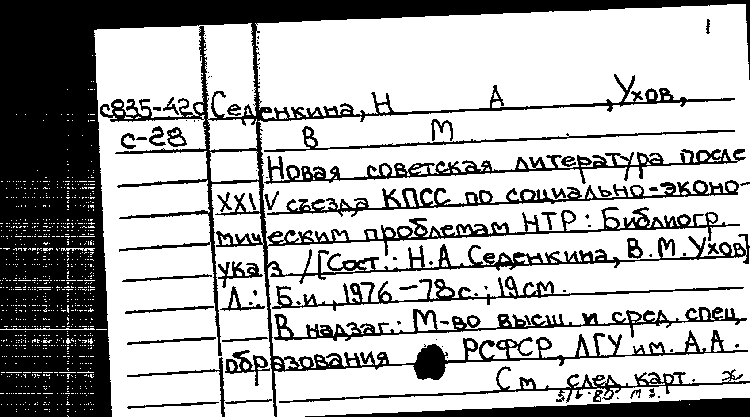 1
с835-42с Седенкина, Н А , Ухов,
с-28 В М
Новая советская литература после
XXIV съезда КПСС по социально-эконо-
мическим проблемам НТР: Библиогр.
указ /[Сост.: Н.А. Седенкина, В.М. Ухов]
Л.: Б.и., 1976 - 78с.; 19см.
В надзаг.: М-во высш. и сред. спец.
образования РСФСР, ЛГУ им. А.А.
См. след. карт.